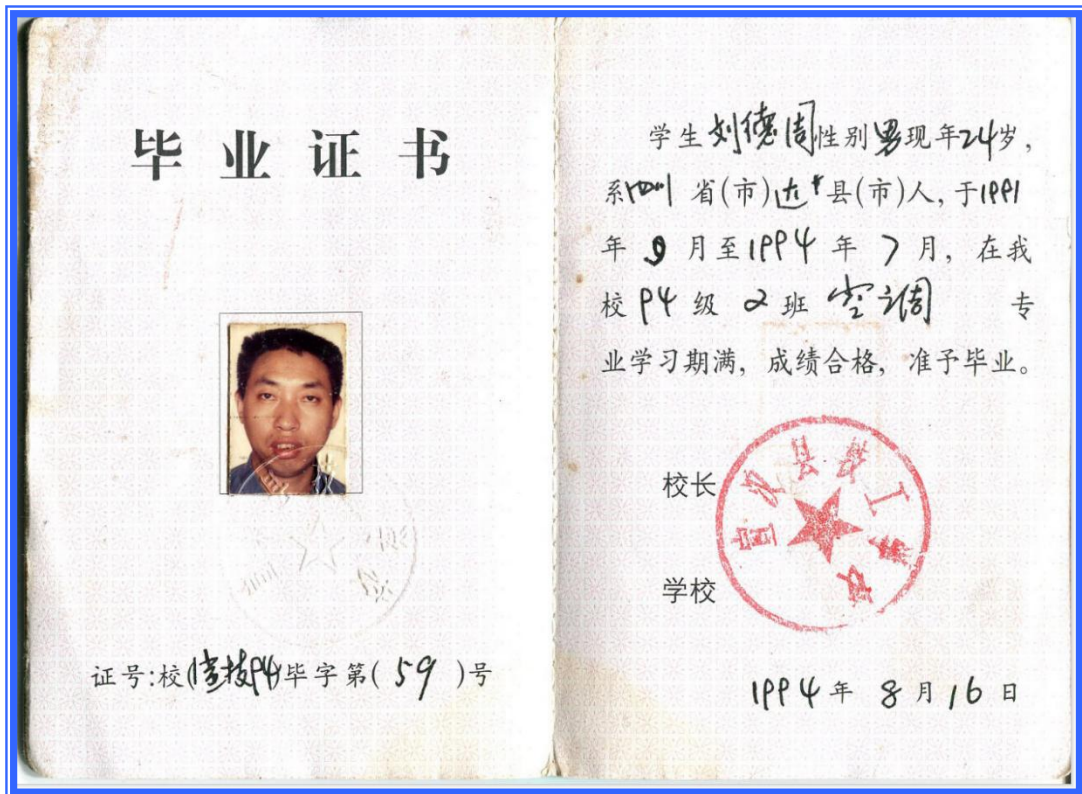 毕业证书
证号:校(宣技94)毕字第(59)号
学生刘德周性别男现年24岁,
系四川省(市)达县(市)人,于1991
年9月至1994年7月,在我
校94级2班空调 专
业学习期满,成绩合格,准予毕业。
校长
学校
宣汉县技工学校
1994年8月16日